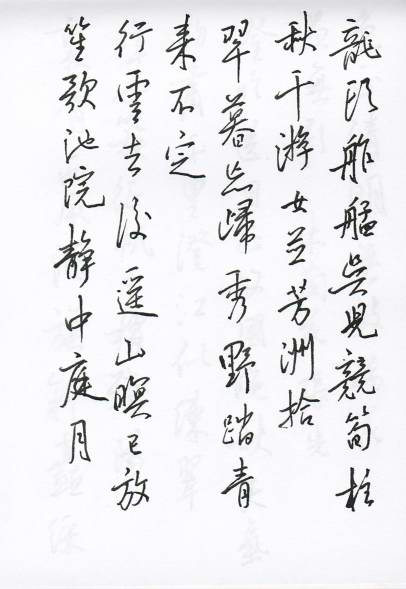 龍頭舴艋吳兒競筍柱
秋千游女並芳洲拾
翠暮忘歸秀野踏青
來不定
行雲去後遥山暝已放
笙歌池院靜中庭月